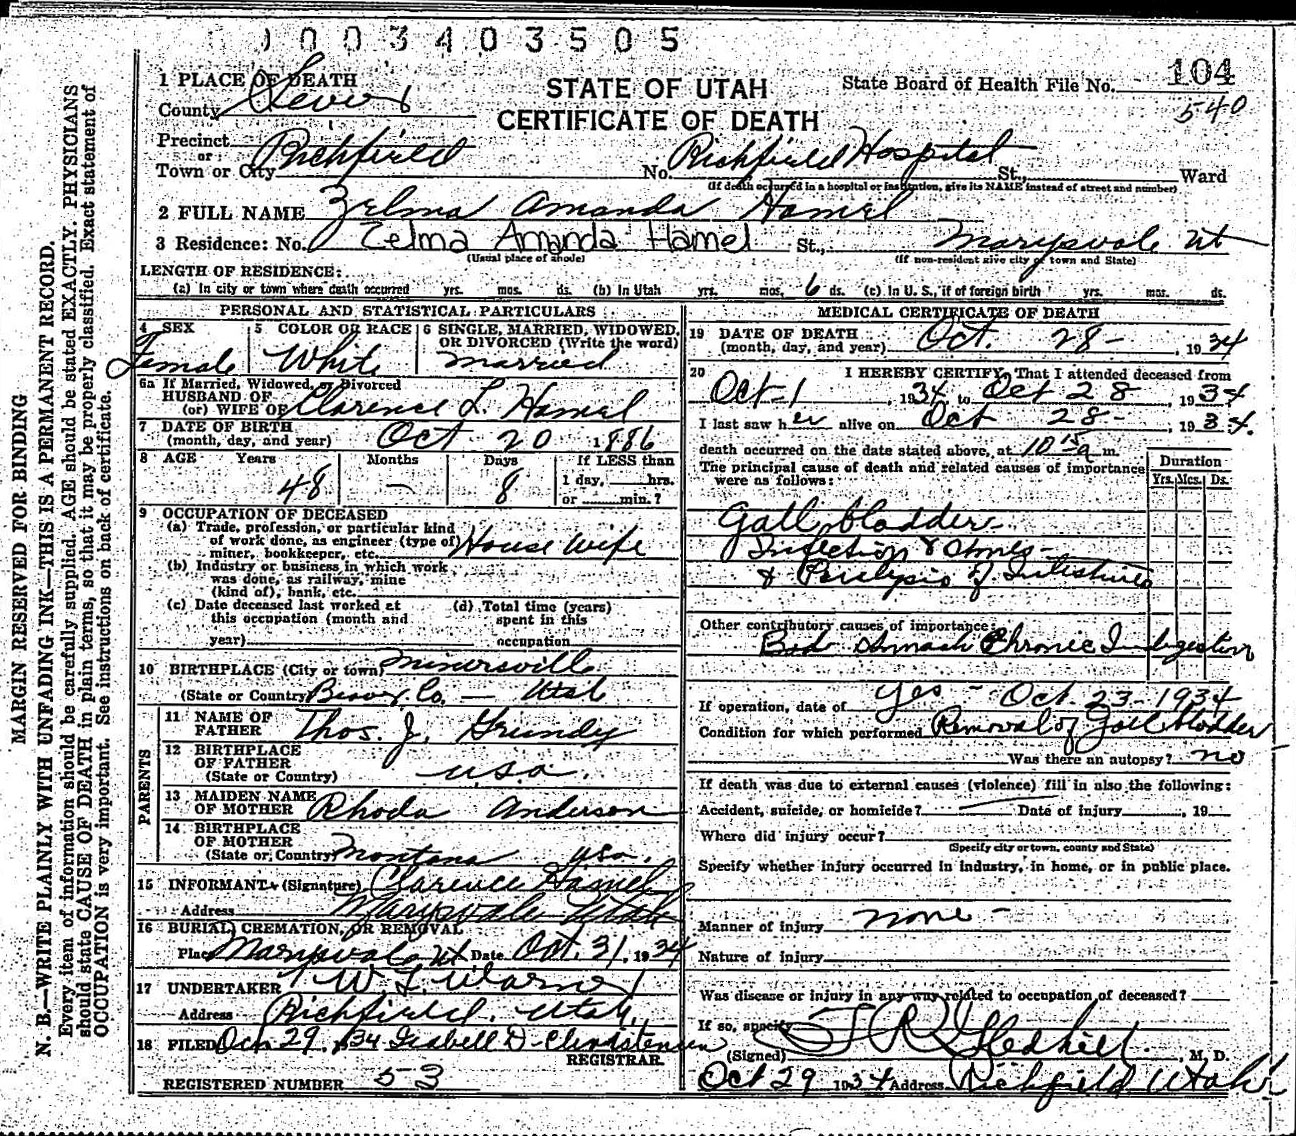 0003403505
1 PLACE OF DEATH
County Sevier
STATE OF UTAH
CERTIFICATE OF DEATH
State Board of Health File No. 104
540
Precinct
or
Town or City Richfield
No. Richfield Hospital St., Ward
(If death occurred in a hospital or institution, give its NAME instead of street and number)
2 FULL NAME Zelma Amanda Hamel
3 Residence: No. Zelma Amanda Hamel St., Marysvale Ut
(Usual place of abode) (If non-resident give city or town and State)
LENGTH OF RESIDENCE:
(a) In city or town where death occurred yrs. mos. ds. (b) In Utah yrs. mos. 6 ds. (c) In U. S., if of foreign birth yrs. mos. ds.
PERSONAL AND STATISTICAL PARTICULARS
4 SEX 5 COLOR OR RACE 6 SINGLE, MARRIED, WIDOWED,
OR DIVORCED (Write the word)
Female White married
6a If Married, Widowed, or Divorced
HUSBAND OF
(or) WIFE OF Clarence L. Hamel
7 DATE OF BIRTH
(month, day, and year) Oct 20 1886
8 AGE Years Months Days If LESS than
1 day, hrs.
48 — 8 or min.?
9 OCCUPATION OF DECEASED
(a) Trade, profession, or particular kind
of work done, as engineer (type of)
miner, bookkeeper, etc. House Wife
(b) Industry or business in which work
was done, as railway, mine
(kind of), bank, etc.
(c) Date deceased last worked at (d) Total time (years)
this occupation (month and spent in this
year) occupation
10 BIRTHPLACE (City or town) Minersville
(State or Country) Beaver Co. — Utah
PARENTS
11 NAME OF
FATHER Thos. J. Grundy
12 BIRTHPLACE
OF FATHER
(State or Country) USA.
13 MAIDEN NAME
OF MOTHER Rhoda Anderson
14 BIRTHPLACE
OF MOTHER
(State or Country) Montana USA.
15 INFORMANT (Signature) Clarence Hamel
Address Marysvale Utah
16 BURIAL, CREMATION, OR REMOVAL
Place Marysvale Ut Date Oct. 31, 1934
17 UNDERTAKER W. L. Warner
Address Richfield, Utah,
18 FILED Oct 29, 1934 Isabell D. Christensen
REGISTRAR
REGISTERED NUMBER 53
MEDICAL CERTIFICATE OF DEATH
19 DATE OF DEATH
(month, day, and year) Oct. 28 - , 1934
20 I HEREBY CERTIFY, That I attended deceased from
Oct - 1 , 1934, to Oct 28 , 1934
I last saw her alive on Oct 28 - , 1934.
death occurred on the date stated above, at 10 15 a m.
The principal cause of death and related causes of importance
were as follows:
Duration
Yrs. Mos. Ds.
Gall bladder
Infection & stones -
& Paralysis of Intestines
Other contributory causes of importance:
Bad stomach Chronic Indigestion
If operation, date of yes - Oct. 23 - 1934
Condition for which performed Removal of Gall bladder
Was there an autopsy? no
If death was due to external causes (violence) fill in also the following:
Accident, suicide, or homicide? Date of injury , 19
Where did injury occur?
(Specify city or town, county and State)
Specify whether injury occurred in industry, in home, or in public place.
Manner of injury none -
Nature of injury
Was disease or injury in any way related to occupation of deceased?
If so, specify
(Signed) T R Gledhill , M. D.
Oct 29 1934 Address Richfield Utah
MARGIN RESERVED FOR BINDING
N. B.—WRITE PLAINLY WITH UNFADING INK—THIS IS A PERMANENT RECORD.
Every item of information should be carefully supplied. AGE should be stated EXACTLY. PHYSICIANS
should state CAUSE OF DEATH in plain terms, so that it may be properly classified. Exact statement of
OCCUPATION is very important. See instructions on back of certificate.